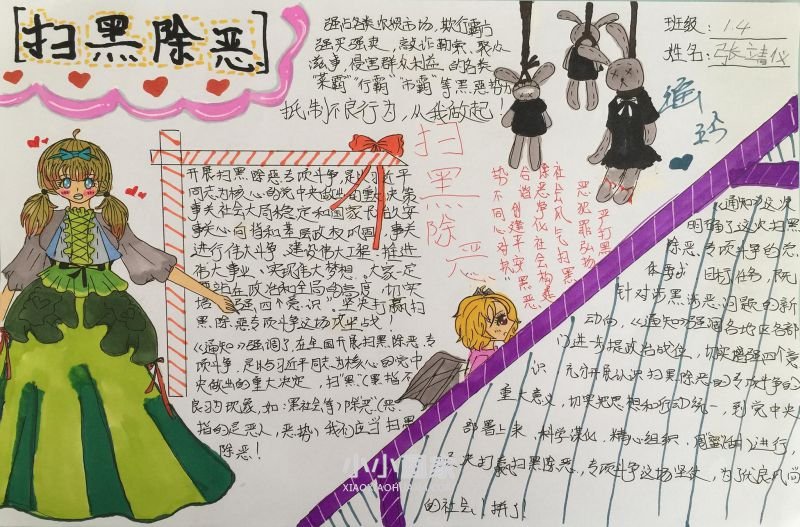 扫黑除恶
强占各类农贸市场,欺行霸市
强买强卖,敲诈勒索,聚众
滋事,侵害群众利益,的各类
"菜霸""行霸""市霸"等黑恶势力
抵制不良行为,从我做起!
班级:1.4
姓名:张靖仪
扫黑除恶
严打黑
恶犯罪弘扬
社会风气扫黑
除恶净化社会构建
合谐创建平安
势不同心对抗
开展扫黑除恶专项斗争,是以习近平
同志为核心的党中央做出的重大决策
事关社会大局稳定和国家长治久安
事关心向背和基层政权巩固,事关
进行伟大斗争,建设伟大工程,推进
伟大事业、实现伟大梦想,大家一定
要站在政治和全局的高度,切实
增强"四个意识",坚决打赢扫
黑除恶专项斗争这场攻坚战!
《通知》强调了在全国开展扫黑除恶专
项斗争,是以习近平同志为核心的党中
央做出的重大决定,扫"黑"(黑指不
良习为现象,如:黑社会等)除恶(恶
指的是恶人,恶势)我们应当扫黑
除恶!
《通知》这次
明确了这次扫黑
除恶专项斗争的总
体要求 目标任务,既
针对涉黑涉恶问题的新
动向,《通知》强调各地区各部
门进一步提政治战位,切实增强四个意
识 充分开展认识扫黑除恶的专项斗争的
重大意义,切实把思想和行动统一,到党中央
部署上来,科学谋化,精心组织,周密进行,
坚决打赢扫黑除恶,专项斗争这场坚战,为了优良风尚
的社会,拼了!
小小画家
XIAOXIAOHUAJIA.COM